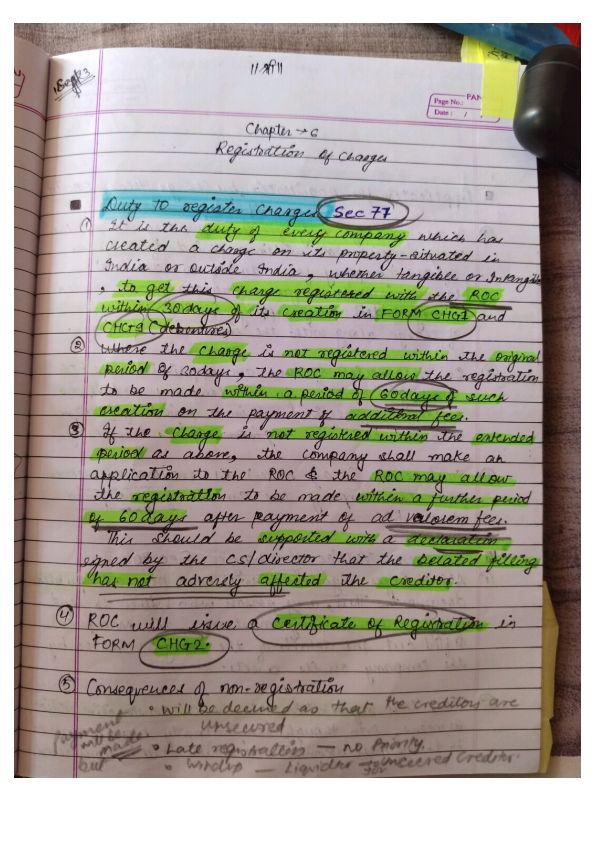 ॥ श्री ॥
Page No.:
Date: / /
Chapter → 6
Registration of Charges
Duty to register charges Sec 77
① It is the duty of every company which has
created a charge on its property situated in
India or outside India, whether tangible or Intangible
, to get this charge registered with the ROC
within 30days of its creation in FORM CHG1 and
CHG9 (debentures)
② Where the charge is not registered within the original
period of 30days, the ROC may allow the registration
to be made within a period of 60days of such
creation on the payment of additional fees.
③ If the charge is not registered within the extended
period as above, the company shall make an
application to the ROC & the ROC may allow
the registration to be made within a further period
of 60days after payment of ad valorem fees.
This should be supported with a declaration
signed by the CS/director that the belated fileing
has not adversly affected the creditor.
④ ROC will issue a certificate of Registration in
FORM CHG2.
⑤ Consequences of non-registration
• will be deemed as that the creditors are
unsecured
payment
made
but
• Late registration — no Priority.
• Windup — Liquidator → unsecured Creditor.